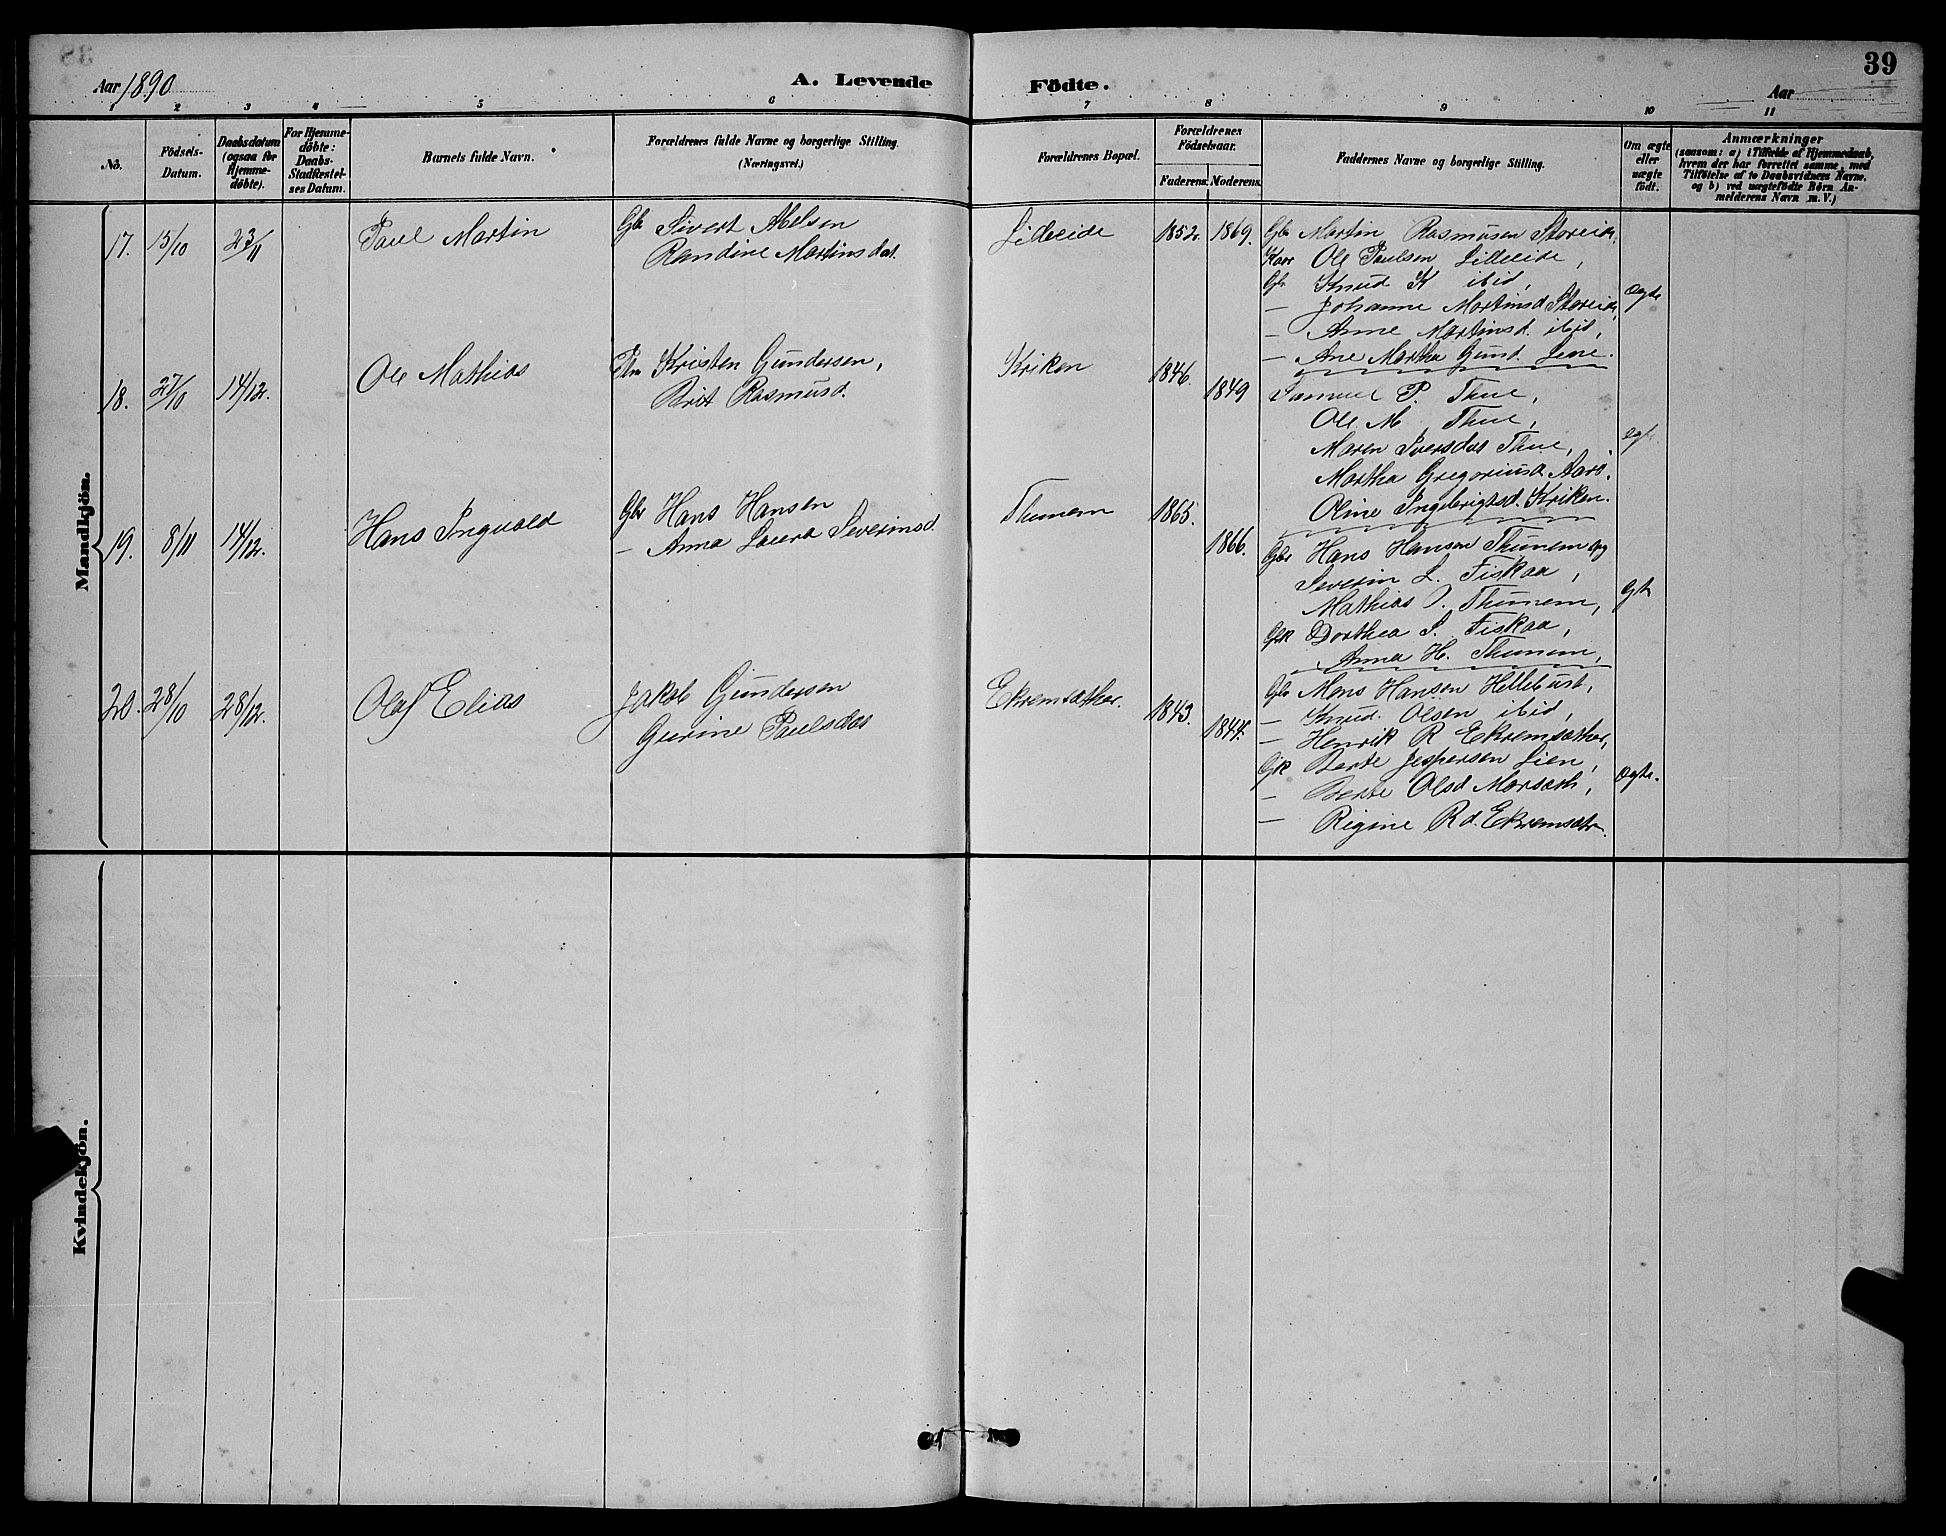 39
Aar 1890
A. Levende Födte.
Aar
1 2 3 4 5 6 7 8 9 10 11
No.
Födsels-
Datum.
Daabsdatum
(ogsaa for
Hjemme-
döbte).
For Hjemme-
döbte:
Daabs-
Stadfæstel-
ses Datum.
Barnets fulde Navn.
Forældrenes fulde Navne og borgerlige Stilling
(Næringsvei.)
Forældrenes Bopæl.
Forældrenes
Födselsaar.
Faderens. Moderens.
Faddernes Navne og borgerlige Stilling.
Om ægte
eller
uægte
födt.
Anmærkninger
(saasom: a) i Tilfælde af Hjemmedaab,
hvem der har forrettet samme, med
Tilföielse af to Daabsvidners Navne,
og b) ved uægtefödte Börn An-
melderens Navn m. V.)
Mandkjön.
17. 15/10 23/11 Paul Martin
Gbr Sivert Abelsen
Randine Martinsdat.
Lideeide 1852. 1869.
Gbr Martin Rasmusen Storeide,
Kaar Ole Paulsen Lilleeide,
Gbr Knud K ibid,
— Johanne Martinsd Storeide,
— Anne Martinsd. ibid,
— Ane Martha Gund. Lene.
ægte
18. 27/10 14/12. Ole Mathias
Kristen Gundersen,
Brit Rasmusd.
Kriken 1846. 1849
Samuel P. Thue,
Ole M Thue,
Maren Iversdat Thue,
Martha Gregoriusd. Aarø.
Oline Ingebrigtsd. Kriken.
egt.
19. 8/11 14/12. Hans Ingvald
Gbr Hans Hansen
— Anna Laura Severinsd
Thunem 1865. 1866.
Gbr Hans Hansen Thunem og
Severin L. Fiskaa,
Mathias J. Thunem,
Gbk Dorthea S. Fiskaa,
Anna H. Thunem,
Gt
20. 28/10 28/12. Olaf Elias
Jakob Gundersen
Gurine Paulsdat
Ekremsæther. 1843. 1844.
Gbr Mons Hansen Hellebust,
— Knud. Olsen ibid,
— Henrik R Ekremsæther,
Gjk Berte Jespersen Lien,
— Berte Olsd Morsæth,
— Rigine R d. Ekremsætr.
ægte.
Kvindekjön.